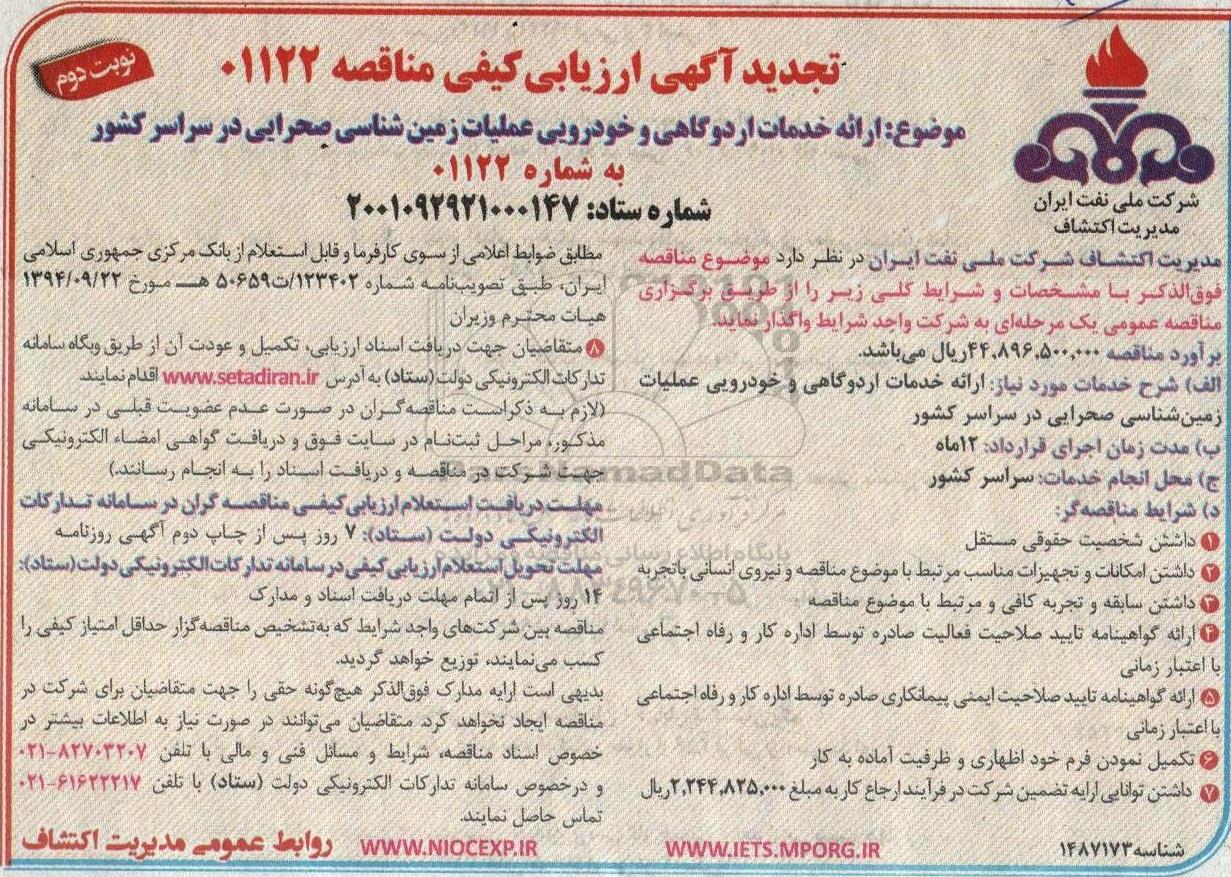 نوبت دوم
تجدید آگهی ارزیابی کیفی مناقصه ۰۱۱۲۲
موضوع: ارائه خدمات اردوگاهی و خودرویی عملیات زمین شناسی صحرایی در سراسر کشور
به شماره ۰۱۱۲۲
شماره ستاد: ۲۰۰۱۰۹۲۹۲۱۰۰۰۱۴۷
شرکت ملی نفت ایران
مدیریت اکتشاف
مدیریت اکتشاف شرکت ملی نفت ایران در نظر دارد موضوع مناقصه
فوق‌الذکر با مشخصات و شرایط کلی زیر را از طریق برگزاری
مناقصه عمومی یک مرحله‌ای به شرکت واجد شرایط واگذار نماید.
برآورد مناقصه ۴۴,۸۹۶,۵۰۰,۰۰۰ ریال می‌باشد.
الف) شرح خدمات مورد نیاز: ارائه خدمات اردوگاهی و خودرویی عملیات
زمین‌شناسی صحرایی در سراسر کشور
ب) مدت زمان اجرای قرارداد: ۱۲ماه
ج) محل انجام خدمات: سراسر کشور
د) شرایط مناقصه‌گر:
۱ داشتن شخصیت حقوقی مستقل
۲ داشتن امکانات و تجهیزات مناسب مرتبط با موضوع مناقصه و نیروی انسانی باتجربه
۳ داشتن سابقه و تجربه کافی و مرتبط با موضوع مناقصه
۴ ارائه گواهینامه تایید صلاحیت فعالیت صادره توسط اداره کار و رفاه اجتماعی
با اعتبار زمانی
۵ ارائه گواهینامه تایید صلاحیت ایمنی پیمانکاری صادره توسط اداره کار و رفاه اجتماعی
با اعتبار زمانی
۶ تکمیل نمودن فرم خود اظهاری و ظرفیت آماده به کار
۷ داشتن توانایی ارایه تضمین شرکت در فرآیند ارجاع کار به مبلغ ۲,۲۴۴,۸۲۵,۰۰۰ ریال
مطابق ضوابط اعلامی از سوی کارفرما و قابل استعلام از بانک مرکزی جمهوری اسلامی
ایران، طبق تصویب‌نامه شماره ۱۲۳۴۰۲/ت۵۰۶۵۹ هـ مورخ ۱۳۹۴/۰۹/۲۲
هیات محترم وزیران
۸ متقاضیان جهت دریافت اسناد ارزیابی، تکمیل و عودت آن از طریق وبگاه سامانه
تدارکات الکترونیکی دولت (ستاد) به آدرس www.setadiran.ir اقدام نمایند.
(لازم به ذکر است مناقصه‌گران در صورت عدم عضویت قبلی در سامانه
مذکور، مراحل ثبت‌نام در سایت فوق و دریافت گواهی امضاء الکترونیکی
جهت شرکت در مناقصه و دریافت اسناد را به انجام رسانند.)
مهلت دریافت استعلام ارزیابی کیفی مناقصه گران در سامانه تدارکات
الکترونیکی دولت (ستاد): ۷ روز پس از چاپ دوم آگهی روزنامه
مهلت تحویل استعلام ارزیابی کیفی در سامانه تدارکات الکترونیکی دولت (ستاد):
۱۴ روز پس از اتمام مهلت دریافت اسناد و مدارک
مناقصه بین شرکت‌های واجد شرایط که به‌تشخیص مناقصه‌گزار حداقل امتیاز کیفی را
کسب می‌نمایند، توزیع خواهد گردید.
بدیهی است ارایه مدارک فوق‌الذکر هیچ‌گونه حقی را جهت متقاضیان برای شرکت در
مناقصه ایجاد نخواهد کرد. متقاضیان می‌توانند در صورت نیاز به اطلاعات بیشتر در
خصوص اسناد مناقصه، شرایط و مسائل فنی و مالی با تلفن ۰۲۱-۸۲۷۰۳۲۰۷
و درخصوص سامانه تدارکات الکترونیکی دولت (ستاد) با تلفن ۰۲۱-۶۱۶۲۲۲۱۷
تماس حاصل نمایند.
شناسه ۱۴۸۷۱۷۳
WWW.IETS.MPORG.IR
WWW.NIOCEXP.IR
روابط عمومی مدیریت اکتشاف